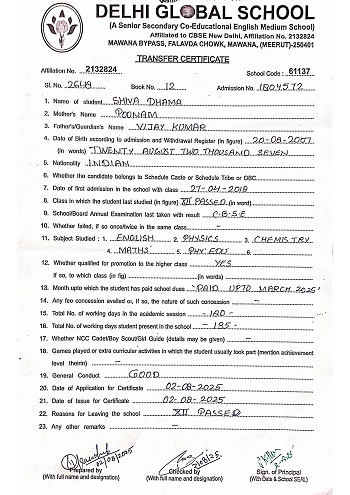 DELHI GLOBAL SCHOOL
(A Senior Secondary Co-Educational English Medium School)
Affiliated to CBSE New Delhi, Affiliation No. 2132824
MAWANA BYPASS, FALAVDA CHOWK, MAWANA, (MEERUT)-250401
TRANSFER CERTIFICATE
Affiliation No. 2132824 School Code : 61137
Sl. No. 2648 Book No. 12 Admission No. 1804572
1. Name of student SHIVA DHAMA
2. Mother's Name POONAM
3. Father's/Guardian's Name VIJAY KUMAR
4. Date of Birth according to admission and Withdrawal Register (in figure) 20-08-2007
(in words) TWENTY AUGUST TWO THOUSAND SEVEN
5. Nationality INDIAN
6. Whether the candidate belongs to Schedule Caste or Schedule Tribe or OBC
7. Date of first admission in the school with class 27-04-2018
8. Class in which the student last studied (in figure) XII PASSED (in word)
9. School/Board Annual Examination last taken with result C.B.S.E
10. Whether failed, if so once/twice in the same class -
11. Subject Studied : 1. ENGLISH 2. PHYSICS 3. CHEMISTRY
4. MATHS 5. PHY EDU 6.
12. Whether qualified for promotion to the higher class YES
If so, to which class (in fig) (in words) -
13. Month upto which the student has paid school dues PAID UPTO MARCH 2025
14. Any fee concession availed o, if so, the nature of such concession -
15. Total No. of working days in the academic session -180-
16. Total No. of working days student present in the school -
17. Whether NCC Cadet/Boy Scout/Girl Guide (details may be given) -
18. Games played or extra curricular activities in which the student usually took part (mention achievement
level therein) -
19. General Conduct GOOD
20. Date of Application for Certificate 02-08-2025
21. Date of Issue for Certificate 02-08-2025
22. Reasons for Leaving the school XII PASSED
23. Any other remarks -
02/08/2025
Prepared by Checked by Sign. of Principal
(With full name and designation) (With full name and designation) (With Date & School SEAL)